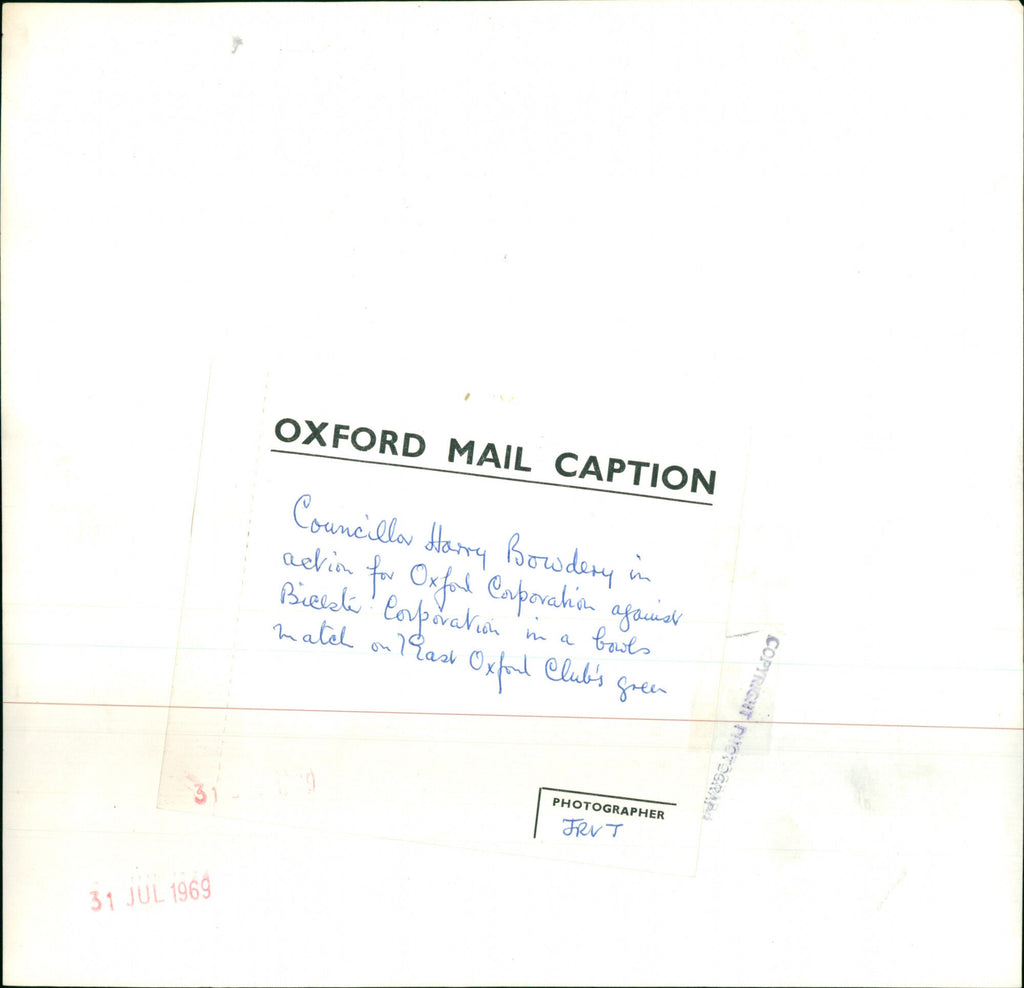 OXFORD MAIL CAPTION
Councillor Harry Bowdery in
action for Oxford Corporation against
Bicester Corporation in a bowls
match on East Oxford Club's green
COPYRIGHT PHOTOGRAPH
31
PHOTOGRAPHER
JRVT
31 JUL 1969